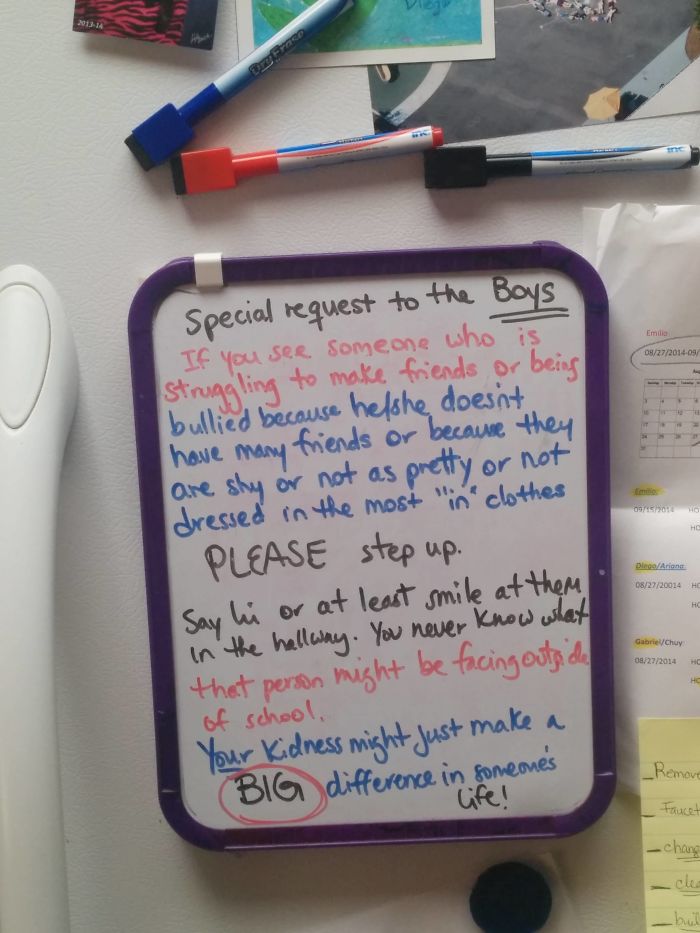 2013-14
Diego
Dry Erase
Special request to the Boys
If you see someone who is
struggling to make friends or being
bullied because he/she doesn't
have many friends or because they
are shy or not as pretty or not
dressed in the most "in" clothes
PLEASE step up.
Say hi or at least smile at them
in the hallway. You never know what
that person might be facing outside
of school.
Your kidness might just make a
BIG difference in someone's
life!
Emilio
08/27/2014-09/
Emilio:
09/15/2014 HO
Diego/Ariana:
08/27/20014
Gabriel/Chuy:
08/27/2014
Remov
Faucet
chang
clea
buil